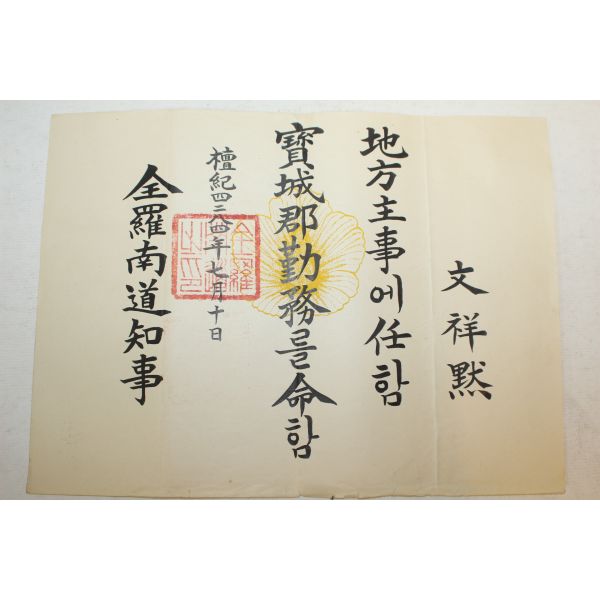 文祥默
地方主事에任함
寶城郡勤務를命함
檀紀四二八四年七月十日
全羅南道知事